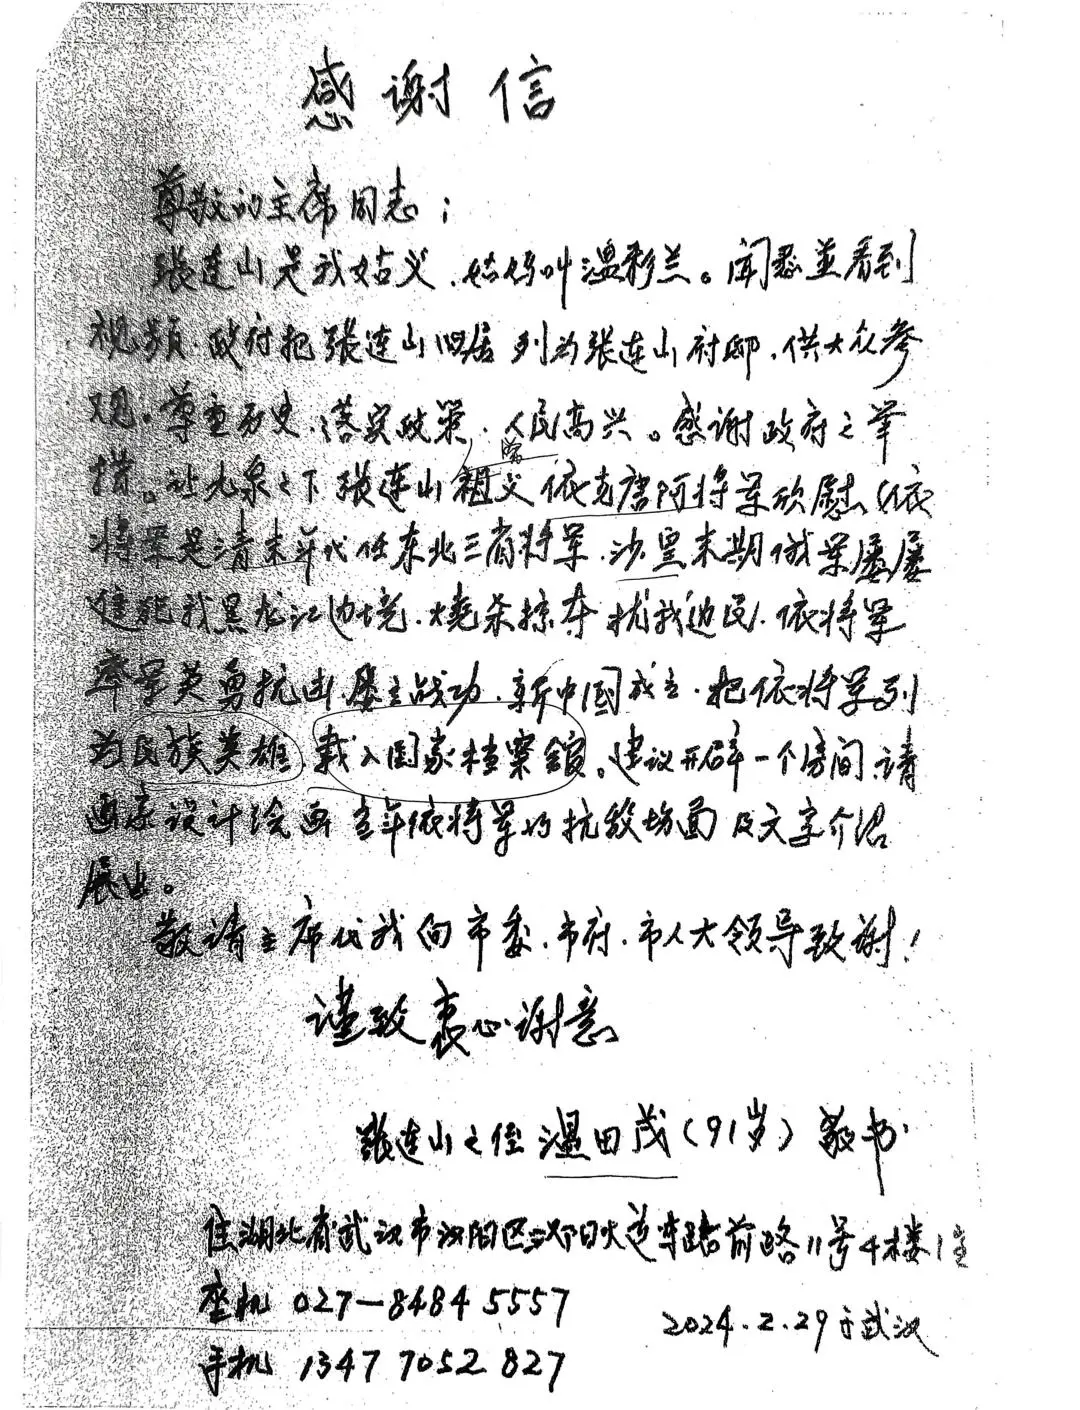 感谢信
尊敬的主席同志；
张连山是我姑父，姑妈叫温彩兰。闻悉並看到
视频，政府把张连山旧居列为张连山府邸，供大众参
观。尊重历史，落实政策，人民高兴。感谢政府之举
措。让九泉之下张连山祖父依克唐阿将军欣慰（依
将军是清末年代任东北三省将军，沙皇末期俄军屡屡
进犯我黑龙江边境，烧杀掠夺扰我边民，依将军
率军英勇抗击，屡立战功，新中国成立，把依将军列
为民族英雄，载入国家档案馆。建议开辟一个房间，请
画家设计绘画当年依将军的抗敌场面及文字介绍
展出。
敬请主席代我向市委、市府、市人大领导致谢！
谨致衷心谢意
张连山之侄温田茂（91岁）敬书
住湖北省武汉市汉阳区大道车站前路11号4楼1室
座机 027—8484 5557
2024.2.29于武汉
手机 1347 7052 827